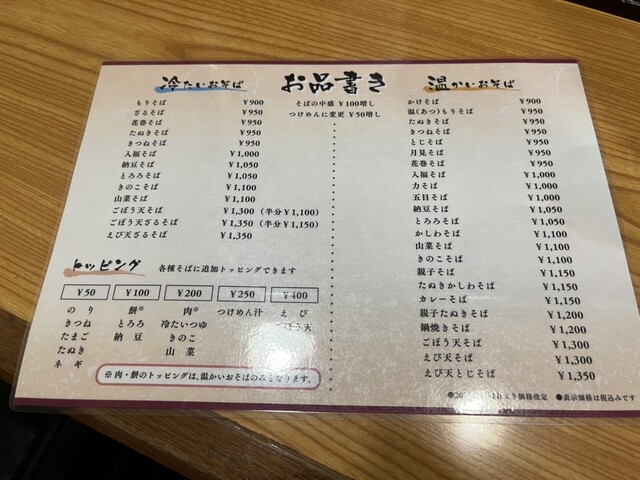 お品書き
そばの中盛 ¥100増し
つけめんに変更 ¥50増し
冷たいおそば
もりそば ¥900
ざるそば ¥950
花巻そば ¥950
たぬきそば ¥950
きつねそば ¥950
入福そば ¥1,000
納豆そば ¥1,050
とろろそば ¥1,050
きのこそば ¥1,100
山菜そば ¥1,100
ごぼう天そば ¥1,300（半分¥1,100）
ごぼう天ざるそば ¥1,350（半分¥1,150）
えび天ざるそば ¥1,350
トッピング 各種そばに追加トッピングできます
¥50 ¥100 ¥200 ¥250 ¥400
のり 餅※ 肉※ つけめん汁 えび
きつね とろろ 冷たいつゆ ごぼう天
たまご 納豆 きのこ
たぬき 山菜
ネギ
※肉・餅のトッピングは、温かいおそばのみとなります。
温かいおそば
かけそば ¥900
温(あつ)もりそば ¥950
たぬきそば ¥950
きつねそば ¥950
とじそば ¥950
月見そば ¥950
花巻そば ¥950
入福そば ¥1,000
力そば ¥1,000
五目そば ¥1,000
納豆そば ¥1,050
とろろそば ¥1,050
かしわそば ¥1,100
山菜そば ¥1,100
きのこそば ¥1,100
親子そば ¥1,150
たぬきかしわそば ¥1,150
カレーそば ¥1,150
親子たぬきそば ¥1,200
鍋焼きそば ¥1,200
ごぼう天そば ¥1,300
えび天そば ¥1,300
えび天とじそば ¥1,350
より価格改定 ●表示価格は税込みです